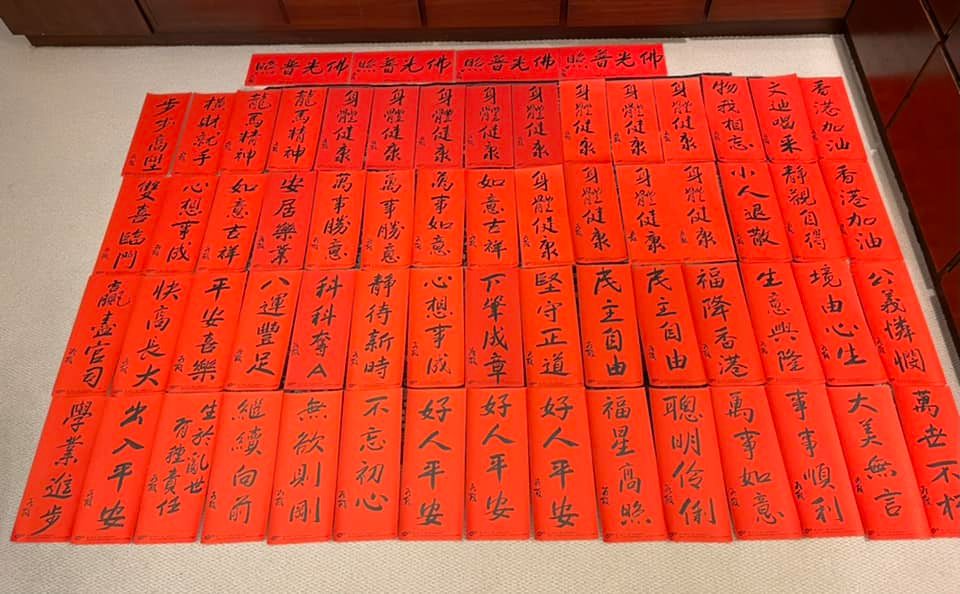 佛光普照
佛光普照
佛光普照
佛光普照
香港加油
文迪喝采
物我相忘
身體健康
身體健康
身體健康
身體健康
身體健康
身體健康
身體健康
身體健康
龍馬精神
龍馬精神
橫財就手
步步高陞
香港加油
靜觀自得
小人退散
身體健康
身體健康
身體健康
身體健康
如意吉祥
萬事如意
萬事勝意
萬事勝意
安居樂業
如意吉祥
心想事成
雙喜臨門
公義憐憫
境由心生
生意興隆
福降香港
民主自由
民主自由
堅守正道
下筆成章
心想事成
靜待新時
科科奪A
八運豐足
平安喜樂
快高長大
贏盡官司
萬世不朽
大美無言
事事順利
萬事如意
聰明伶俐
福星高照
好人平安
好人平安
好人平安
不忘初心
無欲則剛
繼續向前
生於亂世
有種責任
出入平安
學業進步